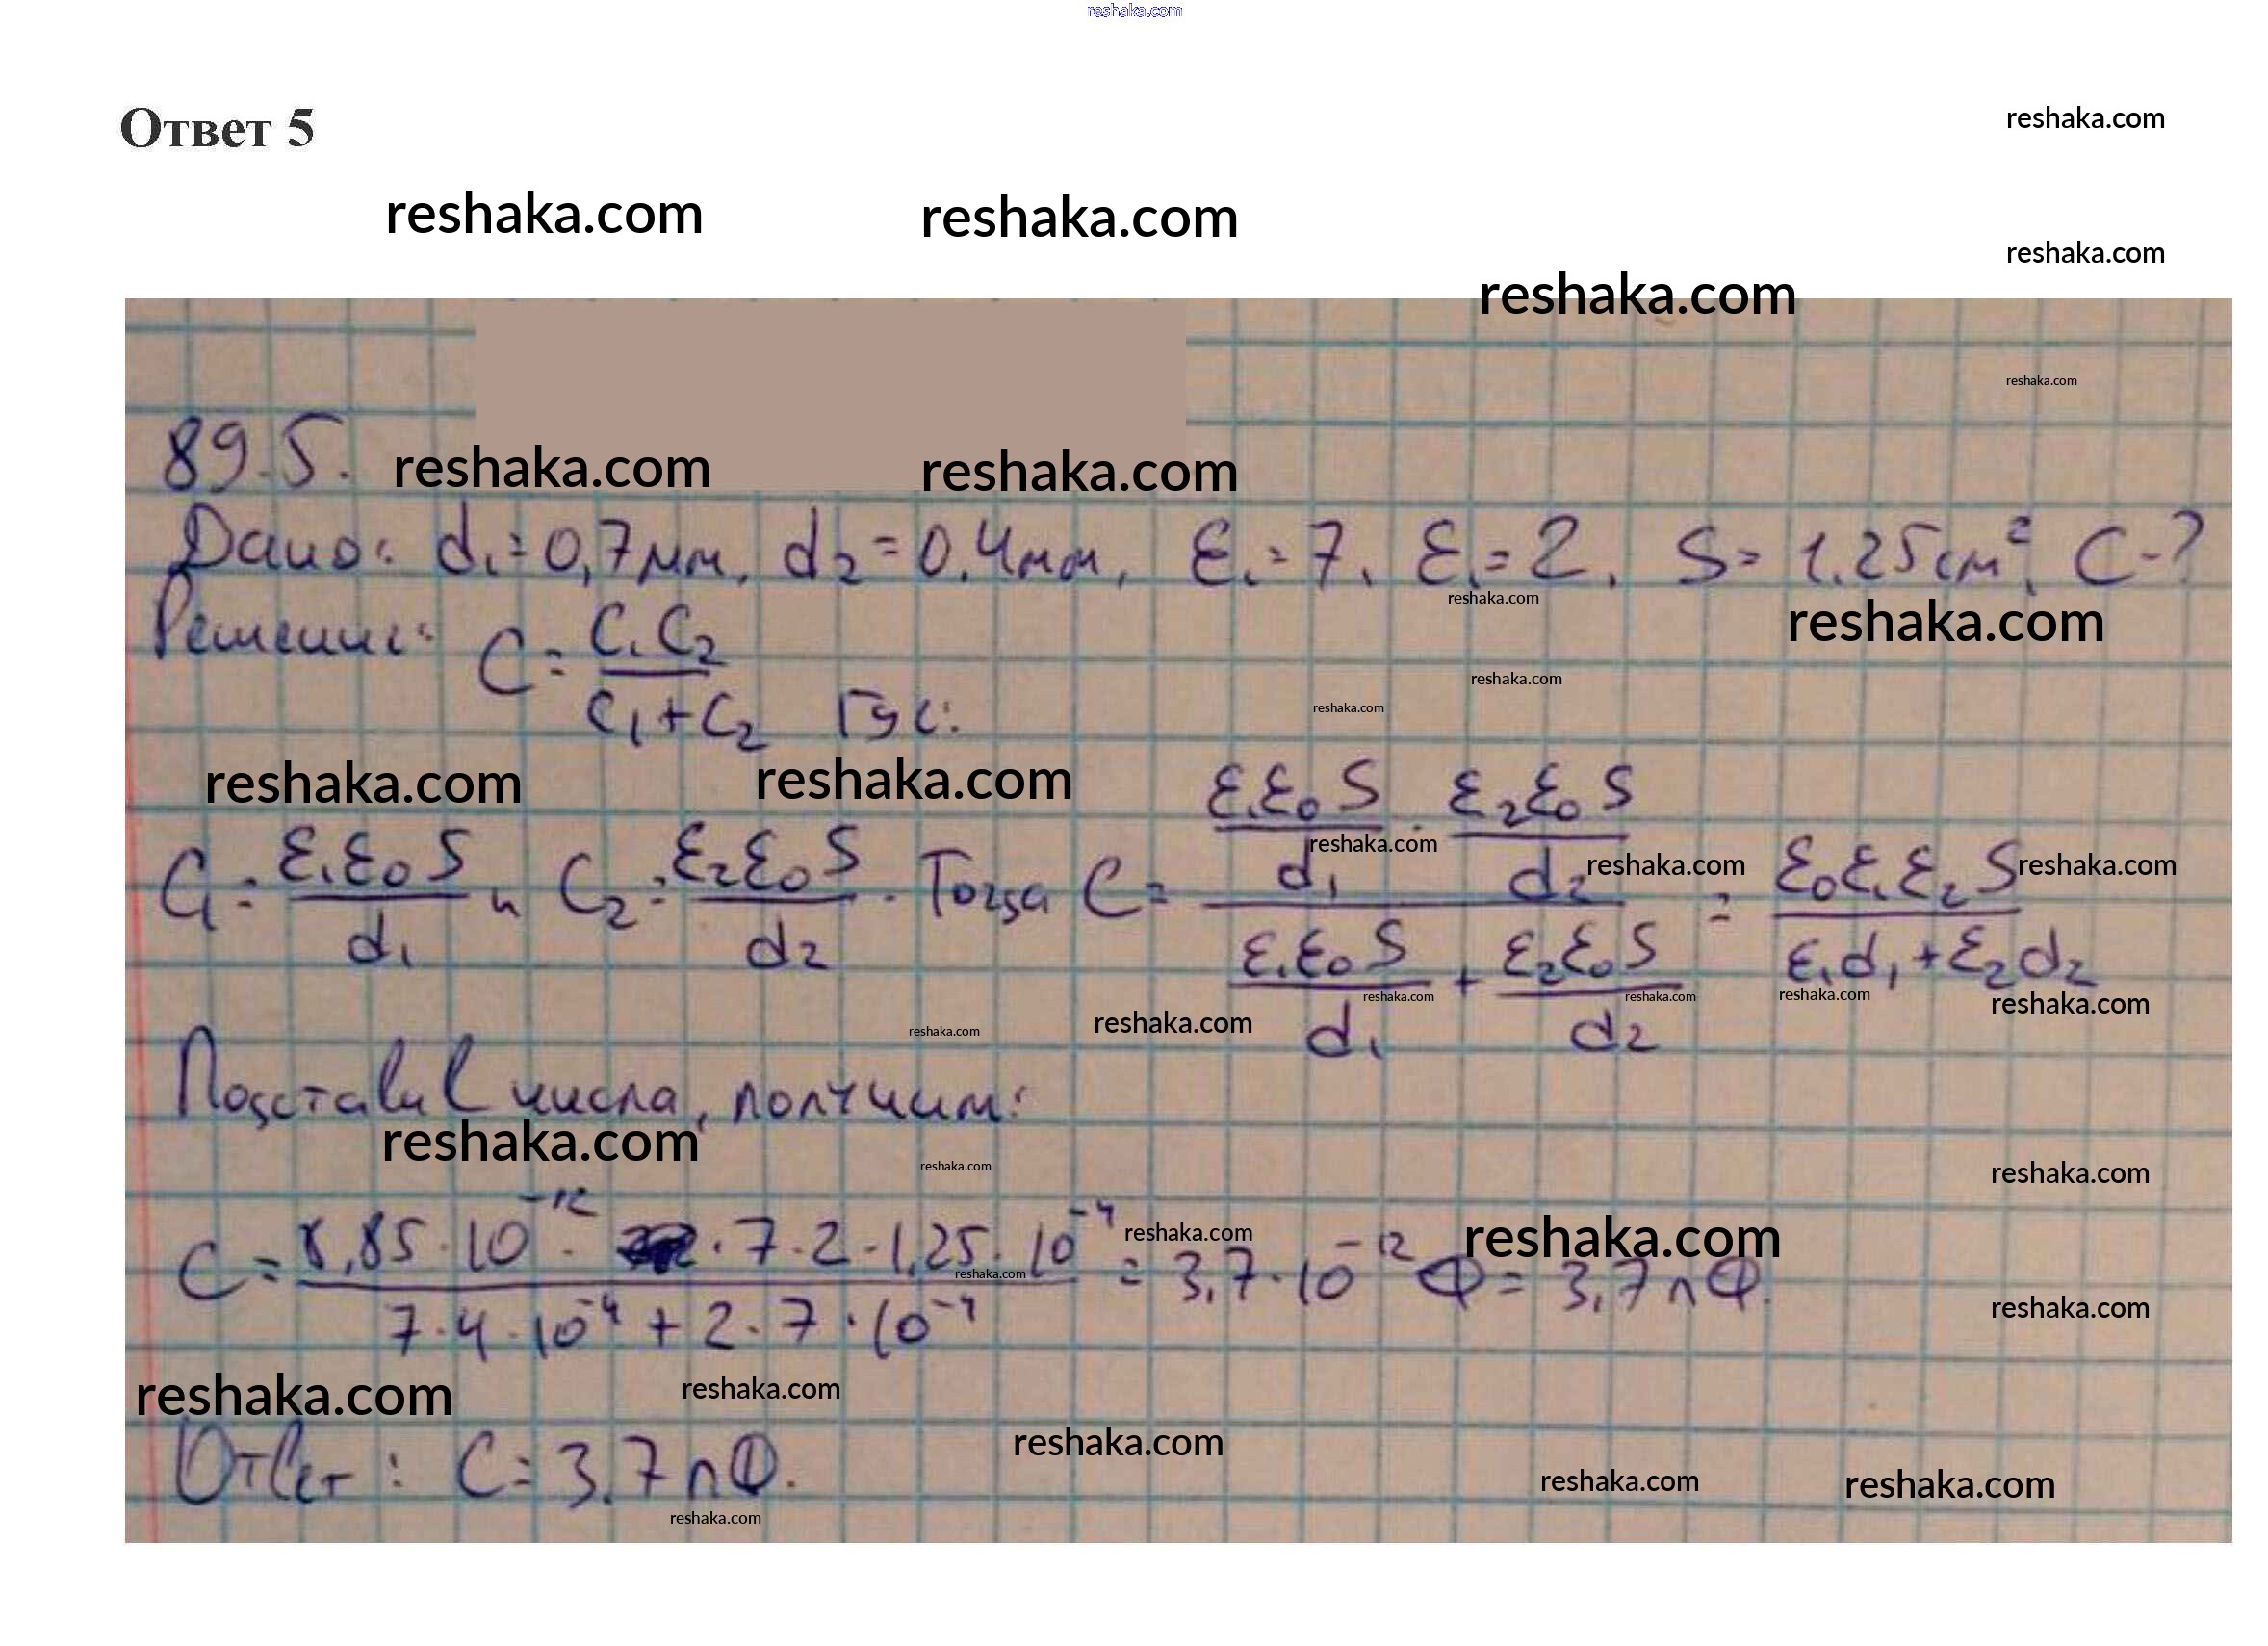 reshaka.com
Ответ 5
reshaka.com
reshaka.com reshaka.com
reshaka.com
reshaka.com
reshaka.com
89.5. reshaka.com reshaka.com
Дано: d₁=0,7мм, d₂=0.4мм, ε₁=7, ε₁=2, S=1.25см², C-?
reshaka.com
reshaka.com
Решение: C = C₁C₂ / C₁+C₂ Где:
reshaka.com
reshaka.com
reshaka.com reshaka.com
C₁ = ε₁ε₀S / d₁ и C₂ = ε₂ε₀S / d₂. Тогда C = (ε₁ε₀S / d₁ · ε₂ε₀S / d₂) / (ε₁ε₀S / d₁ + ε₂ε₀S / d₂) = ε₀ε₁ε₂S / ε₁d₁+ε₂d₂
reshaka.com reshaka.com reshaka.com
reshaka.com reshaka.com reshaka.com reshaka.com
reshaka.com reshaka.com
Подставив числа, получим:
reshaka.com
reshaka.com reshaka.com
C = 8,85·10⁻¹² · · 7·2·1,25·10⁻⁴ / 7·4·10⁻⁴ + 2·7·10⁻⁴ = 3,7·10⁻¹² Ф = 3,7 пФ.
reshaka.com reshaka.com
reshaka.com
reshaka.com
reshaka.com reshaka.com
reshaka.com
Ответ: C=3.7 пФ.
reshaka.com reshaka.com
reshaka.com